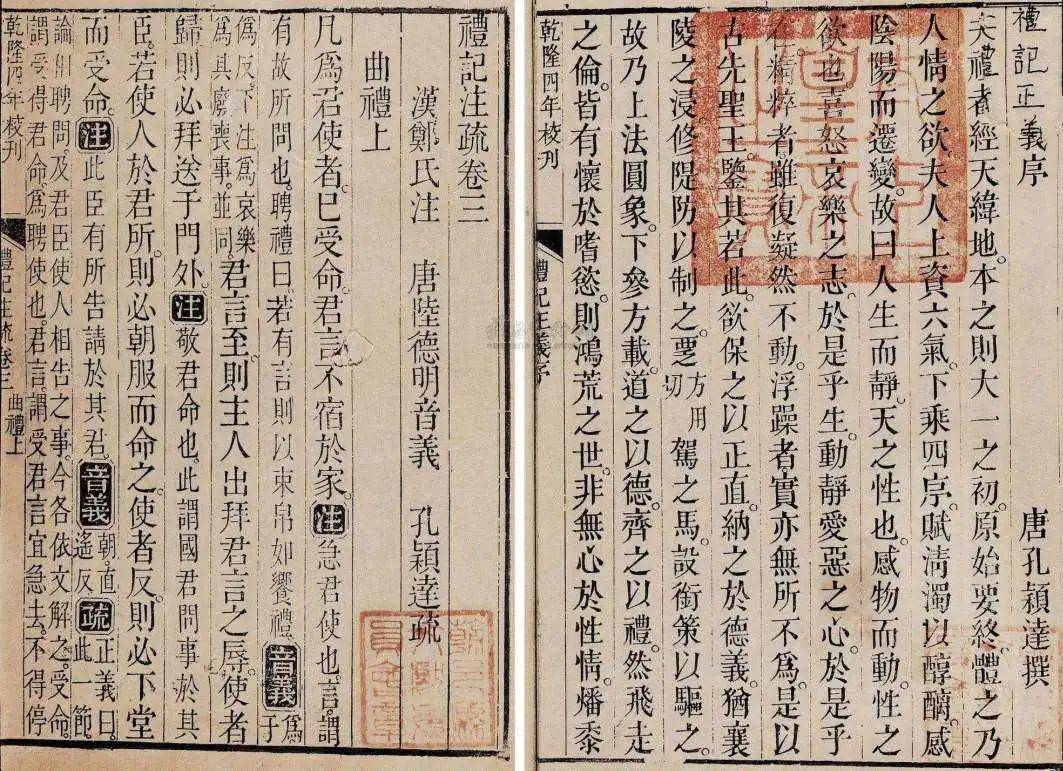 禮記正義序　唐孔穎達撰
夫禮者經天緯地。本之則大一之初。原始要終。體之乃
人情之欲。夫人上資六氣。下乘四序。賦清濁以醇醨。感
陰陽而遷變。故曰人生而靜。天之性也。感物而動。性之
欲也。喜怒哀樂之志。於是乎生。動靜愛惡之心。於是乎
在。精粹者。雖復凝然不動。浮躁者。實亦無所不爲。是以
古先聖王。鑒其若此。欲保之以正直。納之於德義。猶襄
陵之浸。修隄防以制之。覂方用切駕之馬。設銜策以驅之。
故乃上法圓象。下參方載。道之以德。齊之以禮。然飛走
之倫。皆有懷於嗜慾。則鴻荒之世。非無心於性情。燔黍
乾隆四年校刊　禮記正義序
禮記注疏卷三
漢鄭氏注　唐陸德明音義　孔穎達疏
曲禮上
凡爲君使者。已受命。君言不宿於家。注急君使也。言謂
有故所問也。聘禮曰。若有言。則以束帛如饗禮。音義爲于
僞反。下注爲哀樂
爲其廢喪事。並同。君言至。則主人出拜君言之辱。使者
歸。則必拜送于門外。注敬君命也。此謂國君問事於其
臣。若使人於君所。則必朝服而命之。使者反。則必下堂
而受命。注此臣有所告請於其君。音義朝。直遙反。疏正義曰。此一節。
論相聘問。及君臣使人相告之事。今各依文解之。受命
謂受得君命。爲聘使也。君言。謂受君言。宜急去。不得停
乾隆四年校刊　禮記注疏卷三　曲禮上